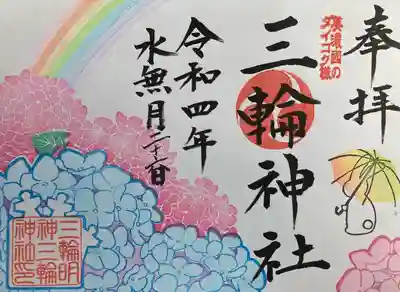 奉拝
美濃國の
ダイコク様
三輪神社
令和四年
水無月二十一日
三輪明
神三輪
神社印